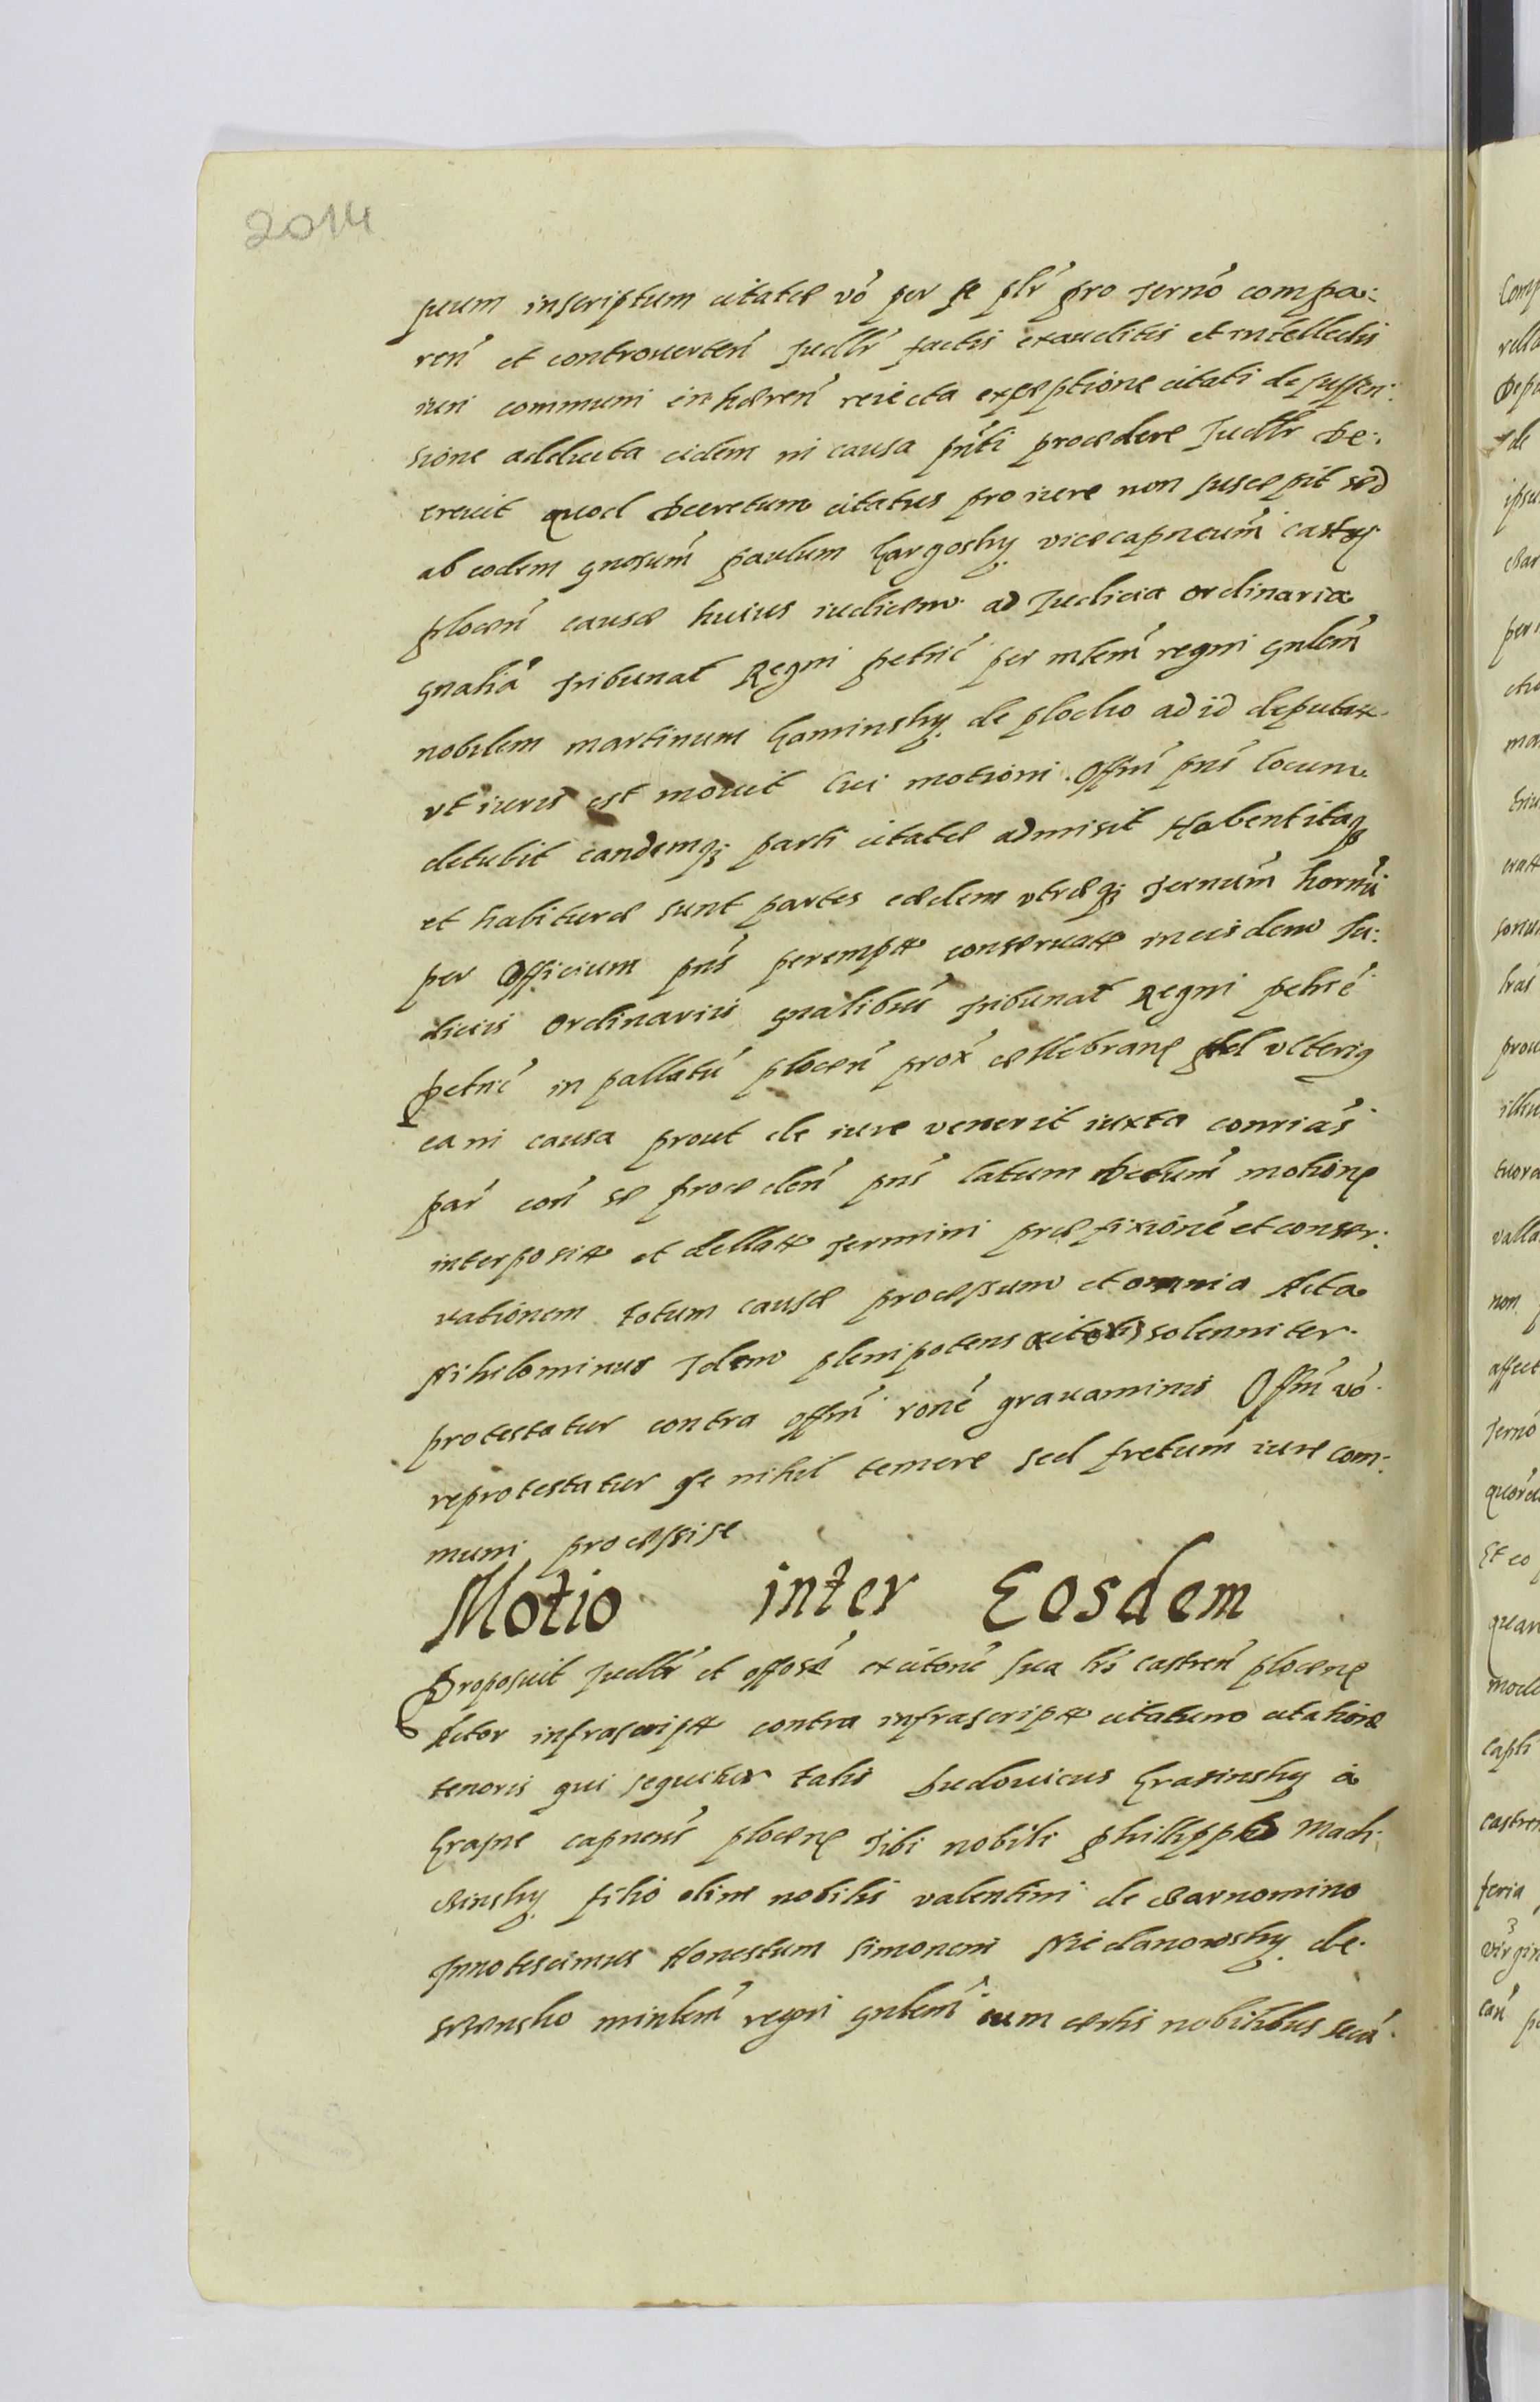 2014
suum inscriptum citatæ vó per se plr̃ pro Jernó compa:
reń et controverteń Judlŕ factis exauditis et intellectis
iuri communi inhæreń reiecta exceptione citati de suspen:
sione adducta eidem in causa pńti procedere Judlr̃ De:
crevit quod Decretum citatus pro iure non suscepit sed
ab eodem gnosum̃ paulum Gargosky vicecapneum̃ castr
ploceń causæ huius iudicem ad Judicia ordinaria
gnalia tribunat Regni petrić per mtem̃ regni gnlem̃
nobilem martinum Kaminsky de plocko ad id deputat
vt iuris est movit Cui motioni Offm̃ pńs locum
detulit eandemq; parti citatæ admisit Habent itaq;
et habituræ sunt partes eædem vtræq; Jernum̃ horm̃
per Officium pńs perempt conservat in eisdem Ju:
diciis Ordinariis gnalibus tribunat Regni petrić
petrić in pallatú ploceń prox́ cellebrane vlterig
ea ni causa prout de iure venerit iuxta conrias
par coń se procedeń pńs latum Dctum̃ motione
interposit et dellat termini præfixioné et conser:
vationem totum causæ processum et omnia Acta
Nihilominus Idem plenipotens solenniter
protestatur contra offm̃ roné gravaminis Offm̃ vó
reprotestatur se nihil temere sed fretum̃ iure com:
muni processise
Motio inter Eosdem
Proposuit Judlŕ et offosé excitoné sua lrís castreń plocene
Actor infrascript contra infrascript citatum citatione
tenoris qui sequitur talis Ludovicus Krasinsky a
Krasne capneus̃ plocene tibi nobili Phillippo Mach
cinsky filio olim nobilis valentini de Barnomino
Innotescimus Honestum simonem Niedanowsky de
minlem̃ regni gnlem̃ cum certis nobilibus secú